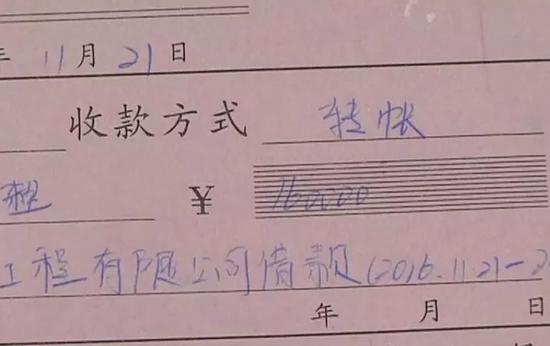 年 11月21日
收款方式 转帐
整 ¥ 160000
工程有限公司借款(2016.11.21-2
年 月 日